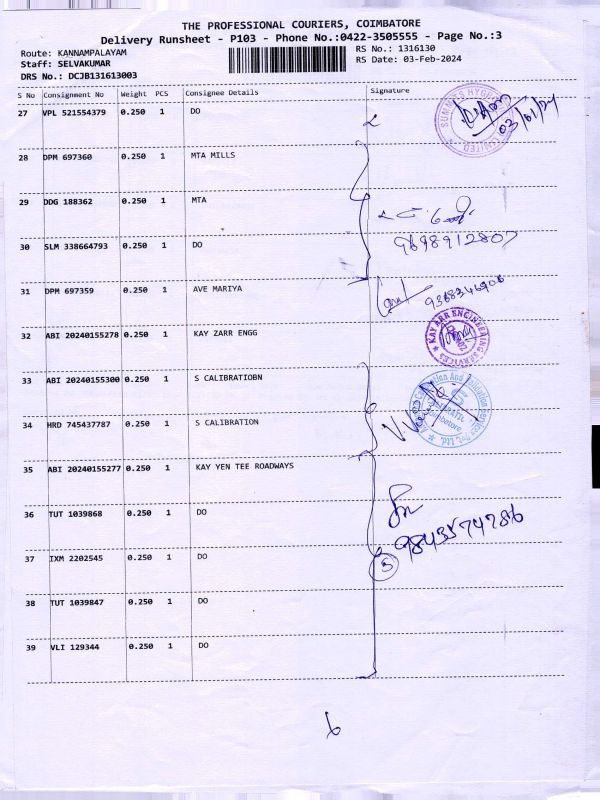 THE PROFESSIONAL COURIERS, COIMBATORE
Delivery Runsheet - P103 - Phone No.:0422-3505555 - Page No.:3
Route: KANNAMPALAYAM
RS No.: 1316130
Staff: SELVAKUMAR
RS Date: 03-Feb-2024
DRS No.: DCJB131613003
S No Consignment No Weight PCS Consignee Details Signature
27 VPL 521554379 0.250 1 DO
28 DPM 697360 0.250 1 MTA MILLS
29 DDG 188362 0.250 1 MTA
30 SLM 338664793 0.250 1 DO
9698912807
31 DPM 697359 0.250 1 AVE MARIYA
9368346906
32 ABI 20240155278 0.250 1 KAY ZARR ENGG
KAY ARR ENGINEERING SERVICES
33 ABI 20240155300 0.250 1 S CALIBRATIOBN
34 HRD 745437787 0.250 1 S CALIBRATION
35 ABI 20240155277 0.250 1 KAY YEN TEE ROADWAYS
36 TUT 1039868 0.250 1 DO
37 IXM 2202545 0.250 1 DO
5
38 TUT 1039847 0.250 1 DO
39 VLI 129344 0.250 1 DO
6